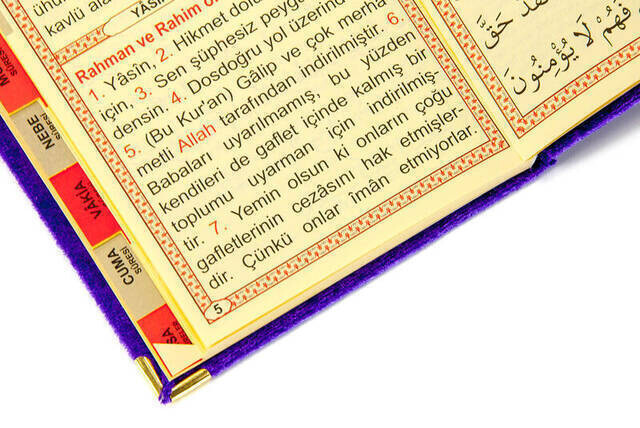 kavlü
YÂSÎN
Rahman ve Rahim
1. Yâsîn, 2. Hikmet
için, 3. Sen şüphesiz
densin. 4. Dosdoğru yol üzerinde
5. (Bu Kur'an) Gâlip ve çok merha-
metli Allah tarafından indirilmiştir. 6.
Babaları uyarılmamış, bu yüzden
kendileri de gaflet içinde kalmış bir
toplumu uyarman için indirilmiş-
tir. 7. Yemin olsun ki onların çoğu
gafletlerinin cezâsını hak etmişler-
dir. Çünkü onlar îmân etmiyorlar.
5
حَقَّ
فَهُمْ لَا يُؤْمِنُونَ
SÛRESİ
NEBE
SÛRESİ
VÂKIA
CUMA
SÛRESİ